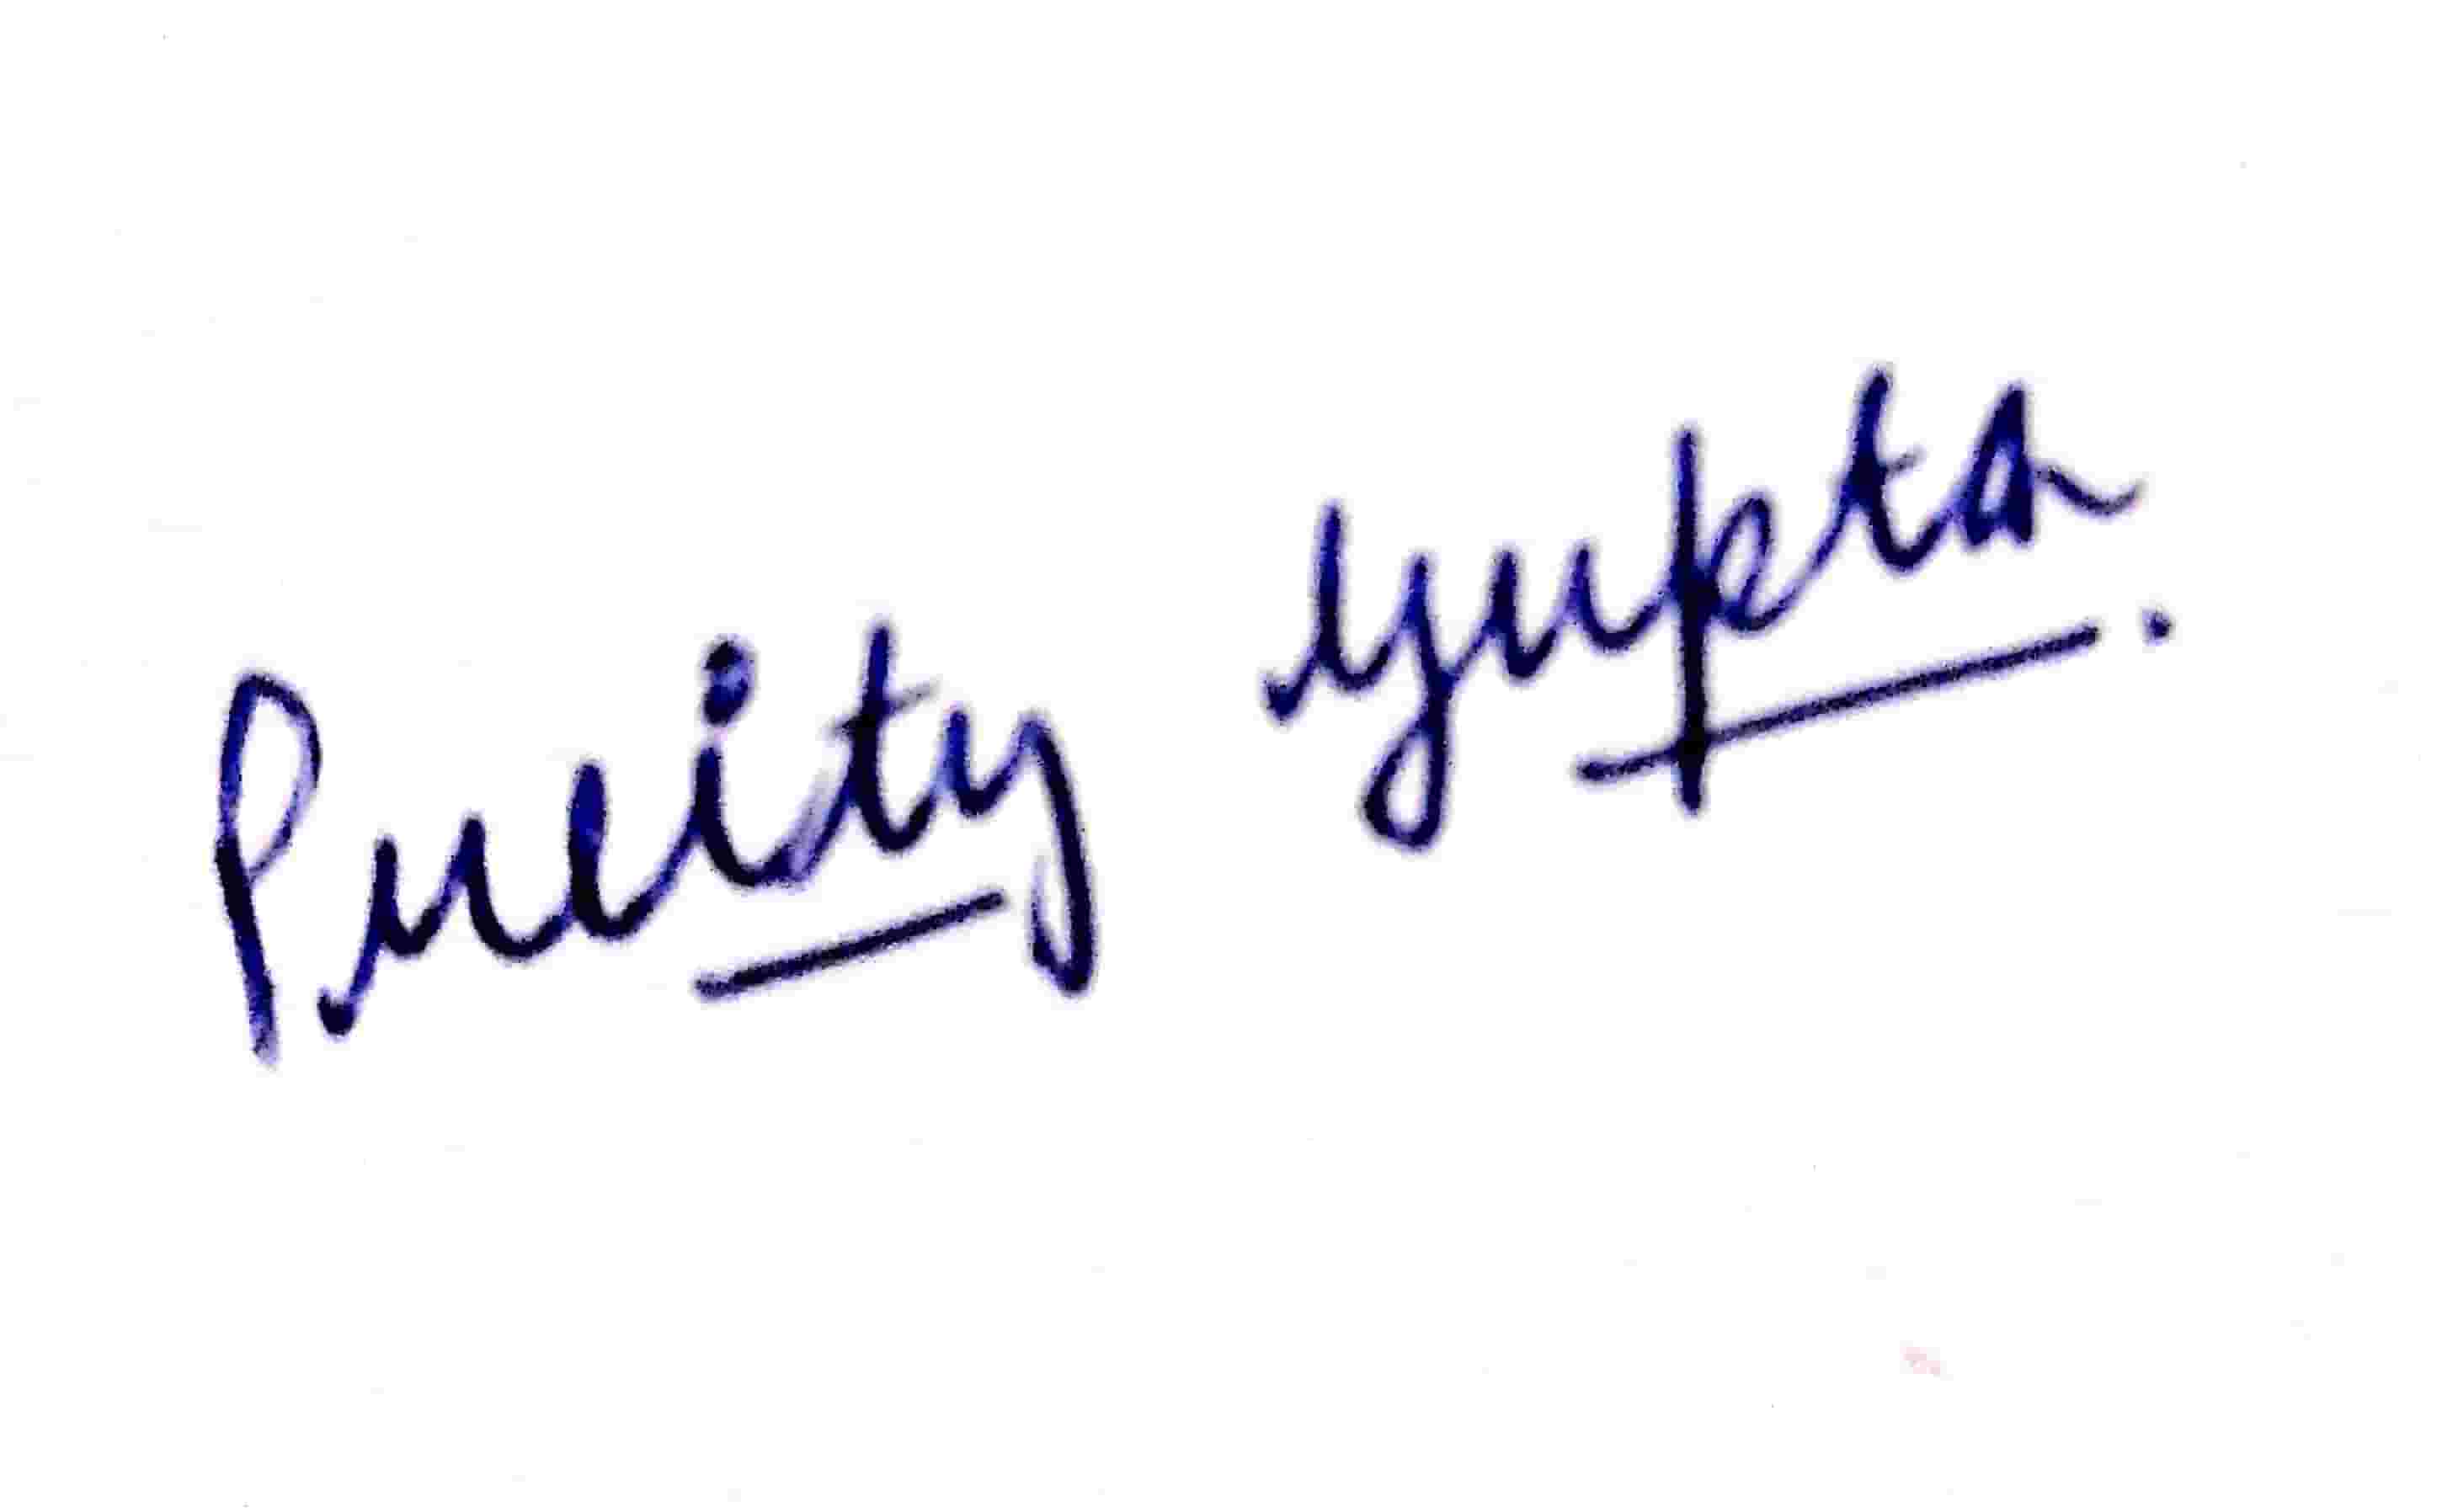 Preity Gupta.